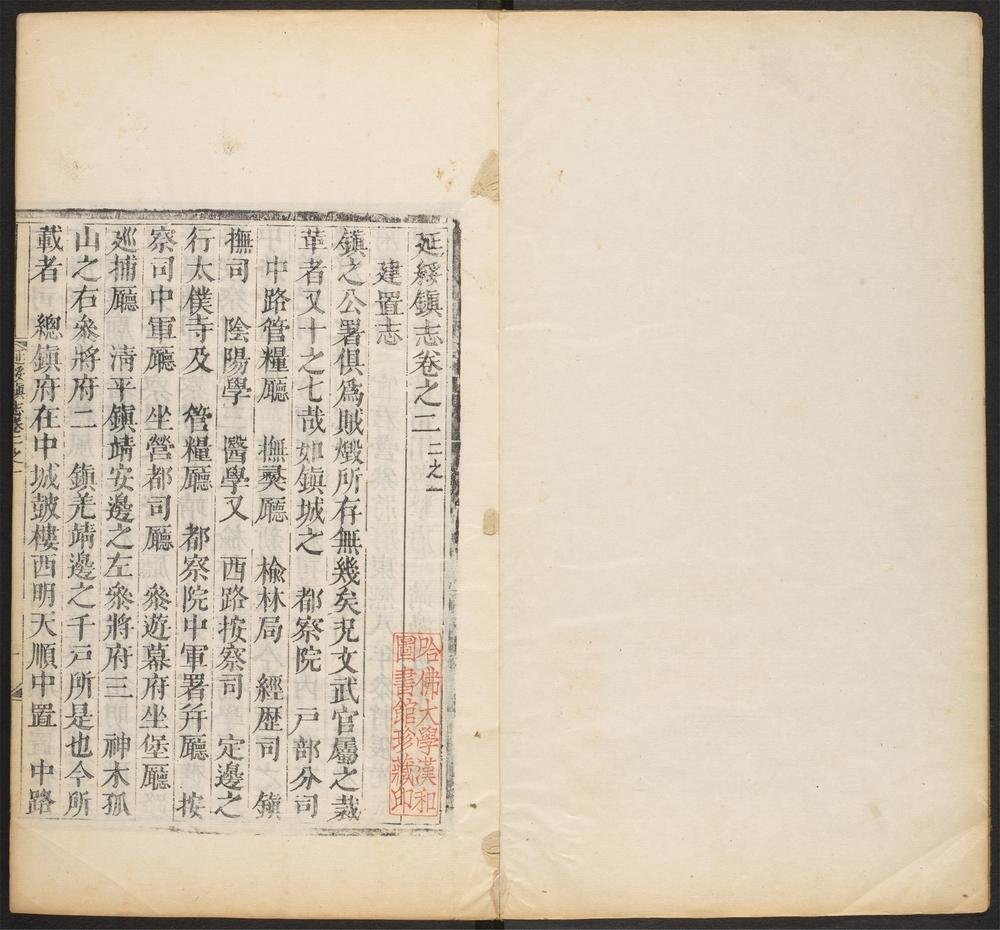 延綏鎭志卷之二 二之一
建置志
鎭之公署俱爲賊燬所存無幾矣况文武官屬之裁
革者又十之七哉如鎭城之　都察院　戸部分司
中路管糧廳　撫夷廳　榆林局　經歷司　鎭
撫司　陰陽學　醫學又　西路按察司　定邊之
行太僕寺及　管糧廳　都察院中軍署并廳　按
察司中軍廳　坐營都司廳　叅遊幕府坐堡廳
廵捕廳　淸平鎭靖安邊之左叅將府三　神木孤
山之右叅將府二　鎭羌靖邊之千戸所是也今所
載者　總鎭府在中城鼓樓西明天順中置　中路
延綏鎭志卷二之一
哈佛大學漢和
圖書館珍藏印